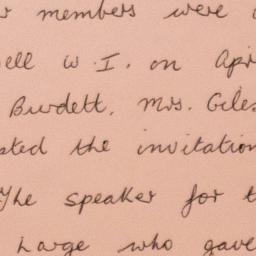 members were
ell W.I. on Apr
Burdett, Mrs. Giles
ted the invitation
The speaker for t
Large who gave